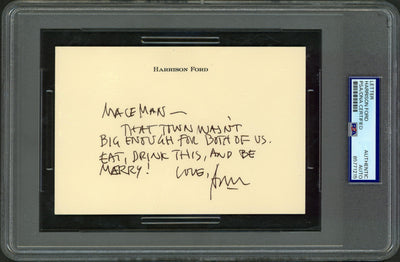 HARRISON FORD
MACEMAN —
THAT TOWN WASN'T
BIG ENOUGH FOR BOTH OF US.
EAT, DRINK THIS, AND BE
MERRY! LOVE,
LETTER
HARRISON FORD
PSA/DNA CERTIFIED
PSA
AUTHENTIC
AUTO